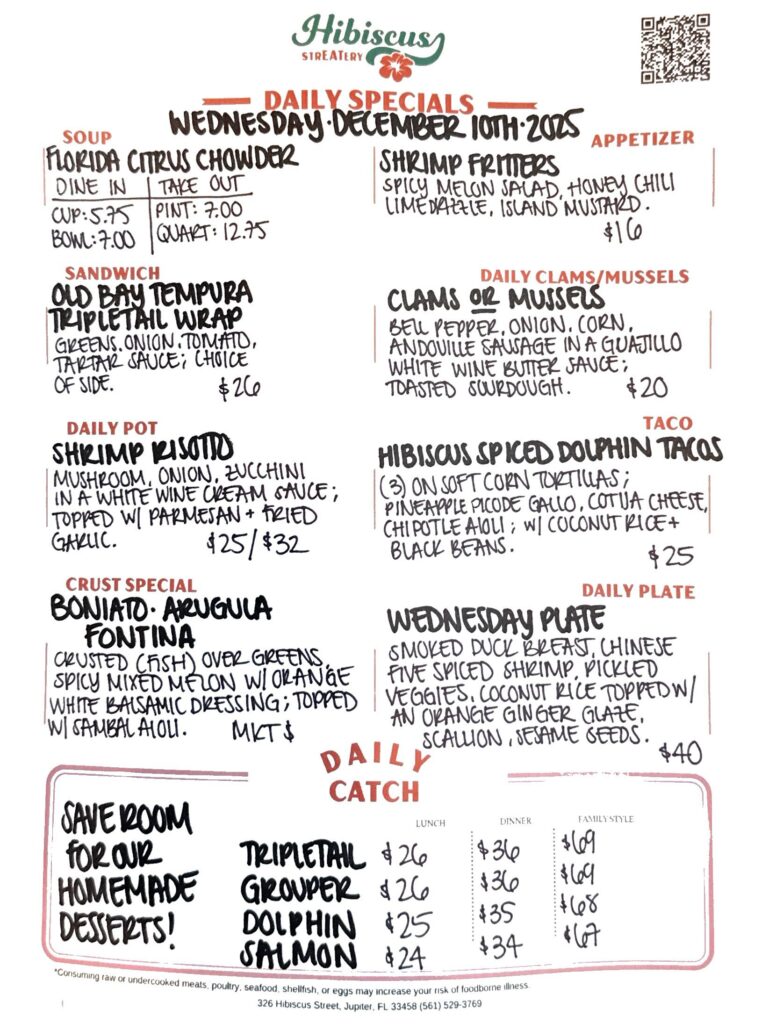 Hibiscus
StrEATery
DAILY SPECIALS
WEDNESDAY · DECEMBER 10TH · 2025
SOUP
FLORIDA CITRUS CHOWDER
DINE IN TAKE OUT
CUP: 5.75 PINT: 7.00
BOWL: 7.00 QUART: 12.75
APPETIZER
SHRIMP FRITTERS
SPICY MELON SALAD, HONEY CHILI
LIME DRIZZLE, ISLAND MUSTARD.
$16
SANDWICH
OLD BAY TEMPURA
TRIPLETAIL WRAP
GREENS, ONION, TOMATO,
TARTAR SAUCE; CHOICE
OF SIDE. $26
DAILY CLAMS/MUSSELS
CLAMS OR MUSSELS
BELL PEPPER, ONION, CORN,
ANDOUILLE SAUSAGE IN A GUAJILLO
WHITE WINE BUTTER SAUCE;
TOASTED SOURDOUGH. $20
DAILY POT
SHRIMP RISOTTO
MUSHROOM, ONION, ZUCCHINI
IN A WHITE WINE CREAM SAUCE;
TOPPED W/ PARMESAN + FRIED
GARLIC. $25/$32
TACO
HIBISCUS SPICED DOLPHIN TACOS
(3) ON SOFT CORN TORTILLAS;
PINEAPPLE PICO DE GALLO, COTIJA CHEESE,
CHIPOTLE AIOLI; W/ COCONUT RICE +
BLACK BEANS. $25
CRUST SPECIAL
BONIATO · ARUGULA
FONTINA
CRUSTED (FISH) OVER GREENS,
SPICY MIXED MELON W/ ORANGE
WHITE BALSAMIC DRESSING; TOPPED
W/ SAMBAL AIOLI. MKT $
DAILY PLATE
WEDNESDAY PLATE
SMOKED DUCK BREAST, CHINESE
FIVE SPICED SHRIMP, PICKLED
VEGGIES, COCONUT RICE TOPPED W/
AN ORANGE GINGER GLAZE,
SCALLION, SESAME SEEDS. $40
DAILY
CATCH
SAVE ROOM
FOR OUR
HOMEMADE
DESSERTS!
LUNCH DINNER FAMILY STYLE
TRIPLETAIL $26 $36 $69
GROUPER $26 $36 $69
DOLPHIN $25 $35 $68
SALMON $24 $34 $67
*Consuming raw or undercooked meats, poultry, seafood, shellfish, or eggs may increase your risk of foodborne illness.
326 Hibiscus Street, Jupiter, FL 33458 (561) 529-3769